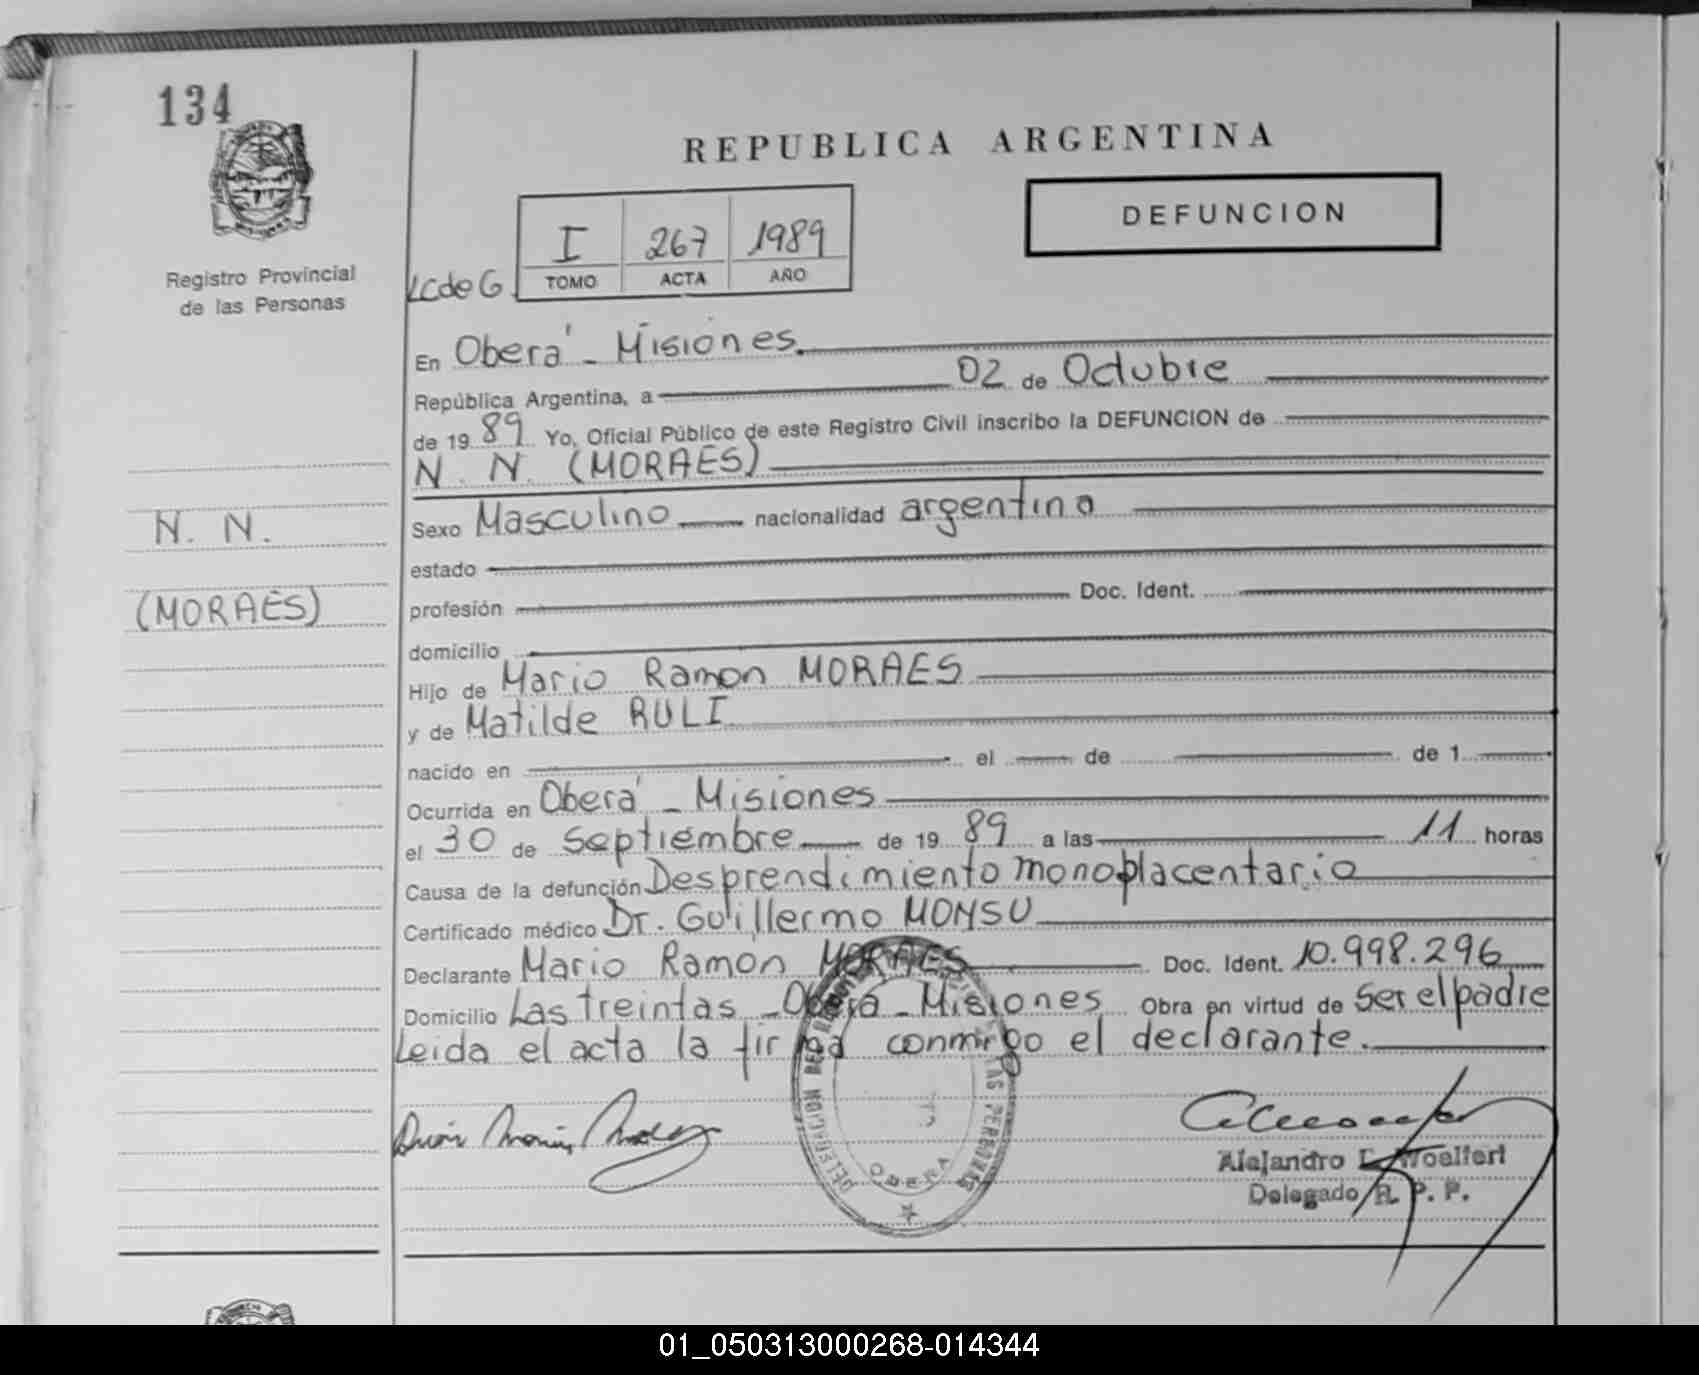 134
REPUBLICA ARGENTINA
DEFUNCION
I 267 1989
TOMO ACTA AÑO
LcdeG.
Registro Provincial
de las Personas
En Oberá - Misiones.
República Argentina, a 02 de Octubre
de 19 89 Yo, Oficial Público de este Registro Civil inscribo la DEFUNCION de
N. N. (MORAES)
N. N.
(MORAES)
Sexo Masculino nacionalidad argentina
estado
profesión Doc. Ident.
domicilio
Hijo de Mario Ramon MORAES
y de Matilde RULI
nacido en el de de 1
Ocurrida en Oberá - Misiones
el 30 de Septiembre de 19 89 a las 11 horas
Causa de la defunción Desprendimiento monoplacentario
Certificado médico Dr. Guillermo MONSU
Declarante Mario Ramon MORAES Doc. Ident. 10.998.296
Domicilio Las treintas - Oberá - Misiones Obra en virtud de Ser el padre
Leida el acta la firma conmigo el declarante.
DELEGACION DEL REGISTRO PROVINCIAL DE LAS PERSONAS
OBERA
Alejandro E. Woelfert
Delegado R. P. P.
01_050313000268-014344